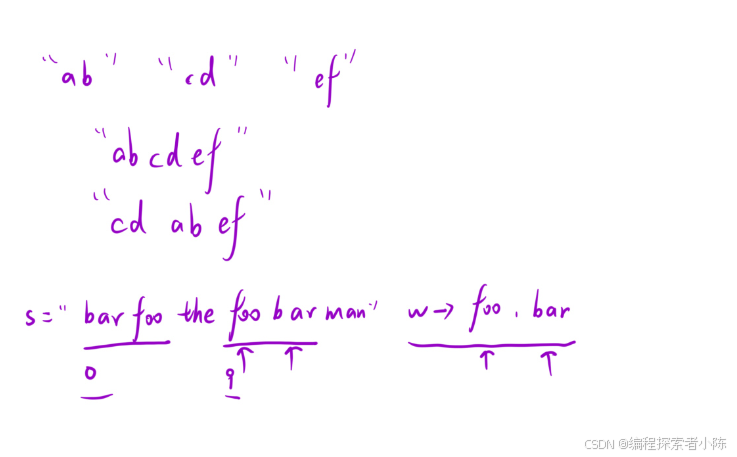 "ab" "cd" "ef"
"abcdef"
"cd ab ef"
s="bar foo the foo bar man" w→ foo . bar
0 9
CSDN @编程探索者小陈